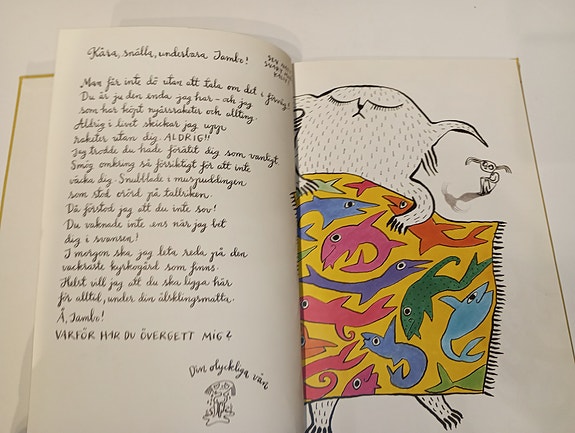 Kära, snälla, underbara Jambo!
Man får inte dö utan att tala om det i förväg!
Du är ju den enda jag har - och jag
som har köpt nyårsraketer och allting.
Aldrig i livet skickar jag upp
raketer utan dig. ALDRIG!!
Jag trodde du hade förätit dig som vanligt.
Smög omkring så försiktigt för att inte
väcka dig. Snubblade i muspuddingen
som stod orörd på tallriken.
Då förstod jag att du inte sov!
Du vaknade inte ens när jag bet
dig i svansen!
I morgon ska jag leta reda på den
vackraste kyrkogård som finns.
Helst vill jag att du ska ligga här
för alltid, under din älsklingsmatta.
Å, Jambo!
VARFÖR HAR DU ÖVERGETT MIG?
Din olyckliga vän